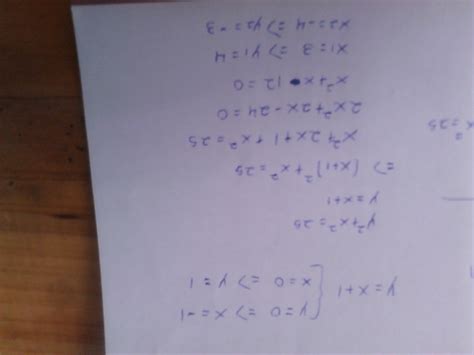 y = x+1 { y=0 => x=-1
x=0 => y=1
y²+x²=25
y=x+1
=> (x+1)²+x²=25
x²+2x+1+x²=25
2x²+2x-24=0
x²+x-12=0
x1=3 => y1=4
x2=-4 => y2=-3
x²=25